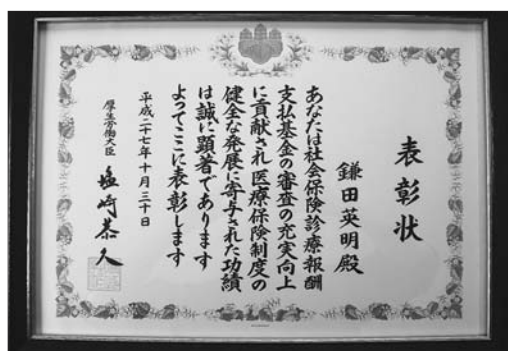 表彰状
鎌田英明殿
あなたは社会保険診療報酬
支払基金の審査の充実向上
に貢献され医療保険制度の
健全な発展に寄与された功績
は誠に顕著であります
よってここに表彰します
平成二十七年十月三十日
厚生労働大臣 塩崎恭久